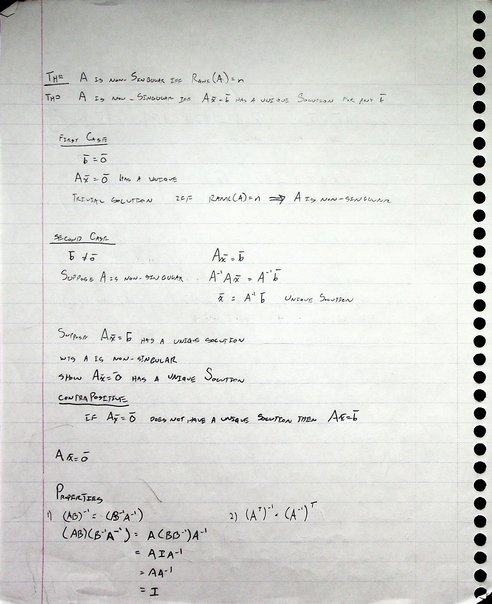 TH= A IS NON-SINGULAR IFF RANK(A)=n
TH= A IS NON-SINGULAR IFF Ax̄=b̄ HAS A UNIQUE SOLUTION FOR ANY b̄
FIRST CASE
b̄ = ō
Ax̄ = ō HAS A UNIQUE
TRIVIAL SOLUTION IFF RANK(A)=n ⟹ A IS NON-SINGULAR
SECOND CASE
b̄ ≠ ō Ax̄ = b̄
SUPPOSE A IS NON-SINGULAR A⁻¹Ax̄ = A⁻¹b̄
x̄ = A⁻¹b̄ UNIQUE SOLUTION
SUPPOSE Ax̄=b̄ HAS A UNIQUE SOLUTION
WTS A IS NON-SINGULAR
SHOW Ax̄=ō HAS A UNIQUE SOLUTION
CONTRAPOSITIVE
IF Ax̄=ō DOES NOT HAVE A UNIQUE SOLUTION THEN Ax̄=b̄
Ax̄=ō
PROPERTIES
1) (AB)⁻¹ = (B⁻¹A⁻¹) 2) (Aᵀ)⁻¹ = (A⁻¹)ᵀ
(AB)(B⁻¹A⁻¹) = A(BB⁻¹)A⁻¹
= AIA⁻¹
= AA⁻¹
= I